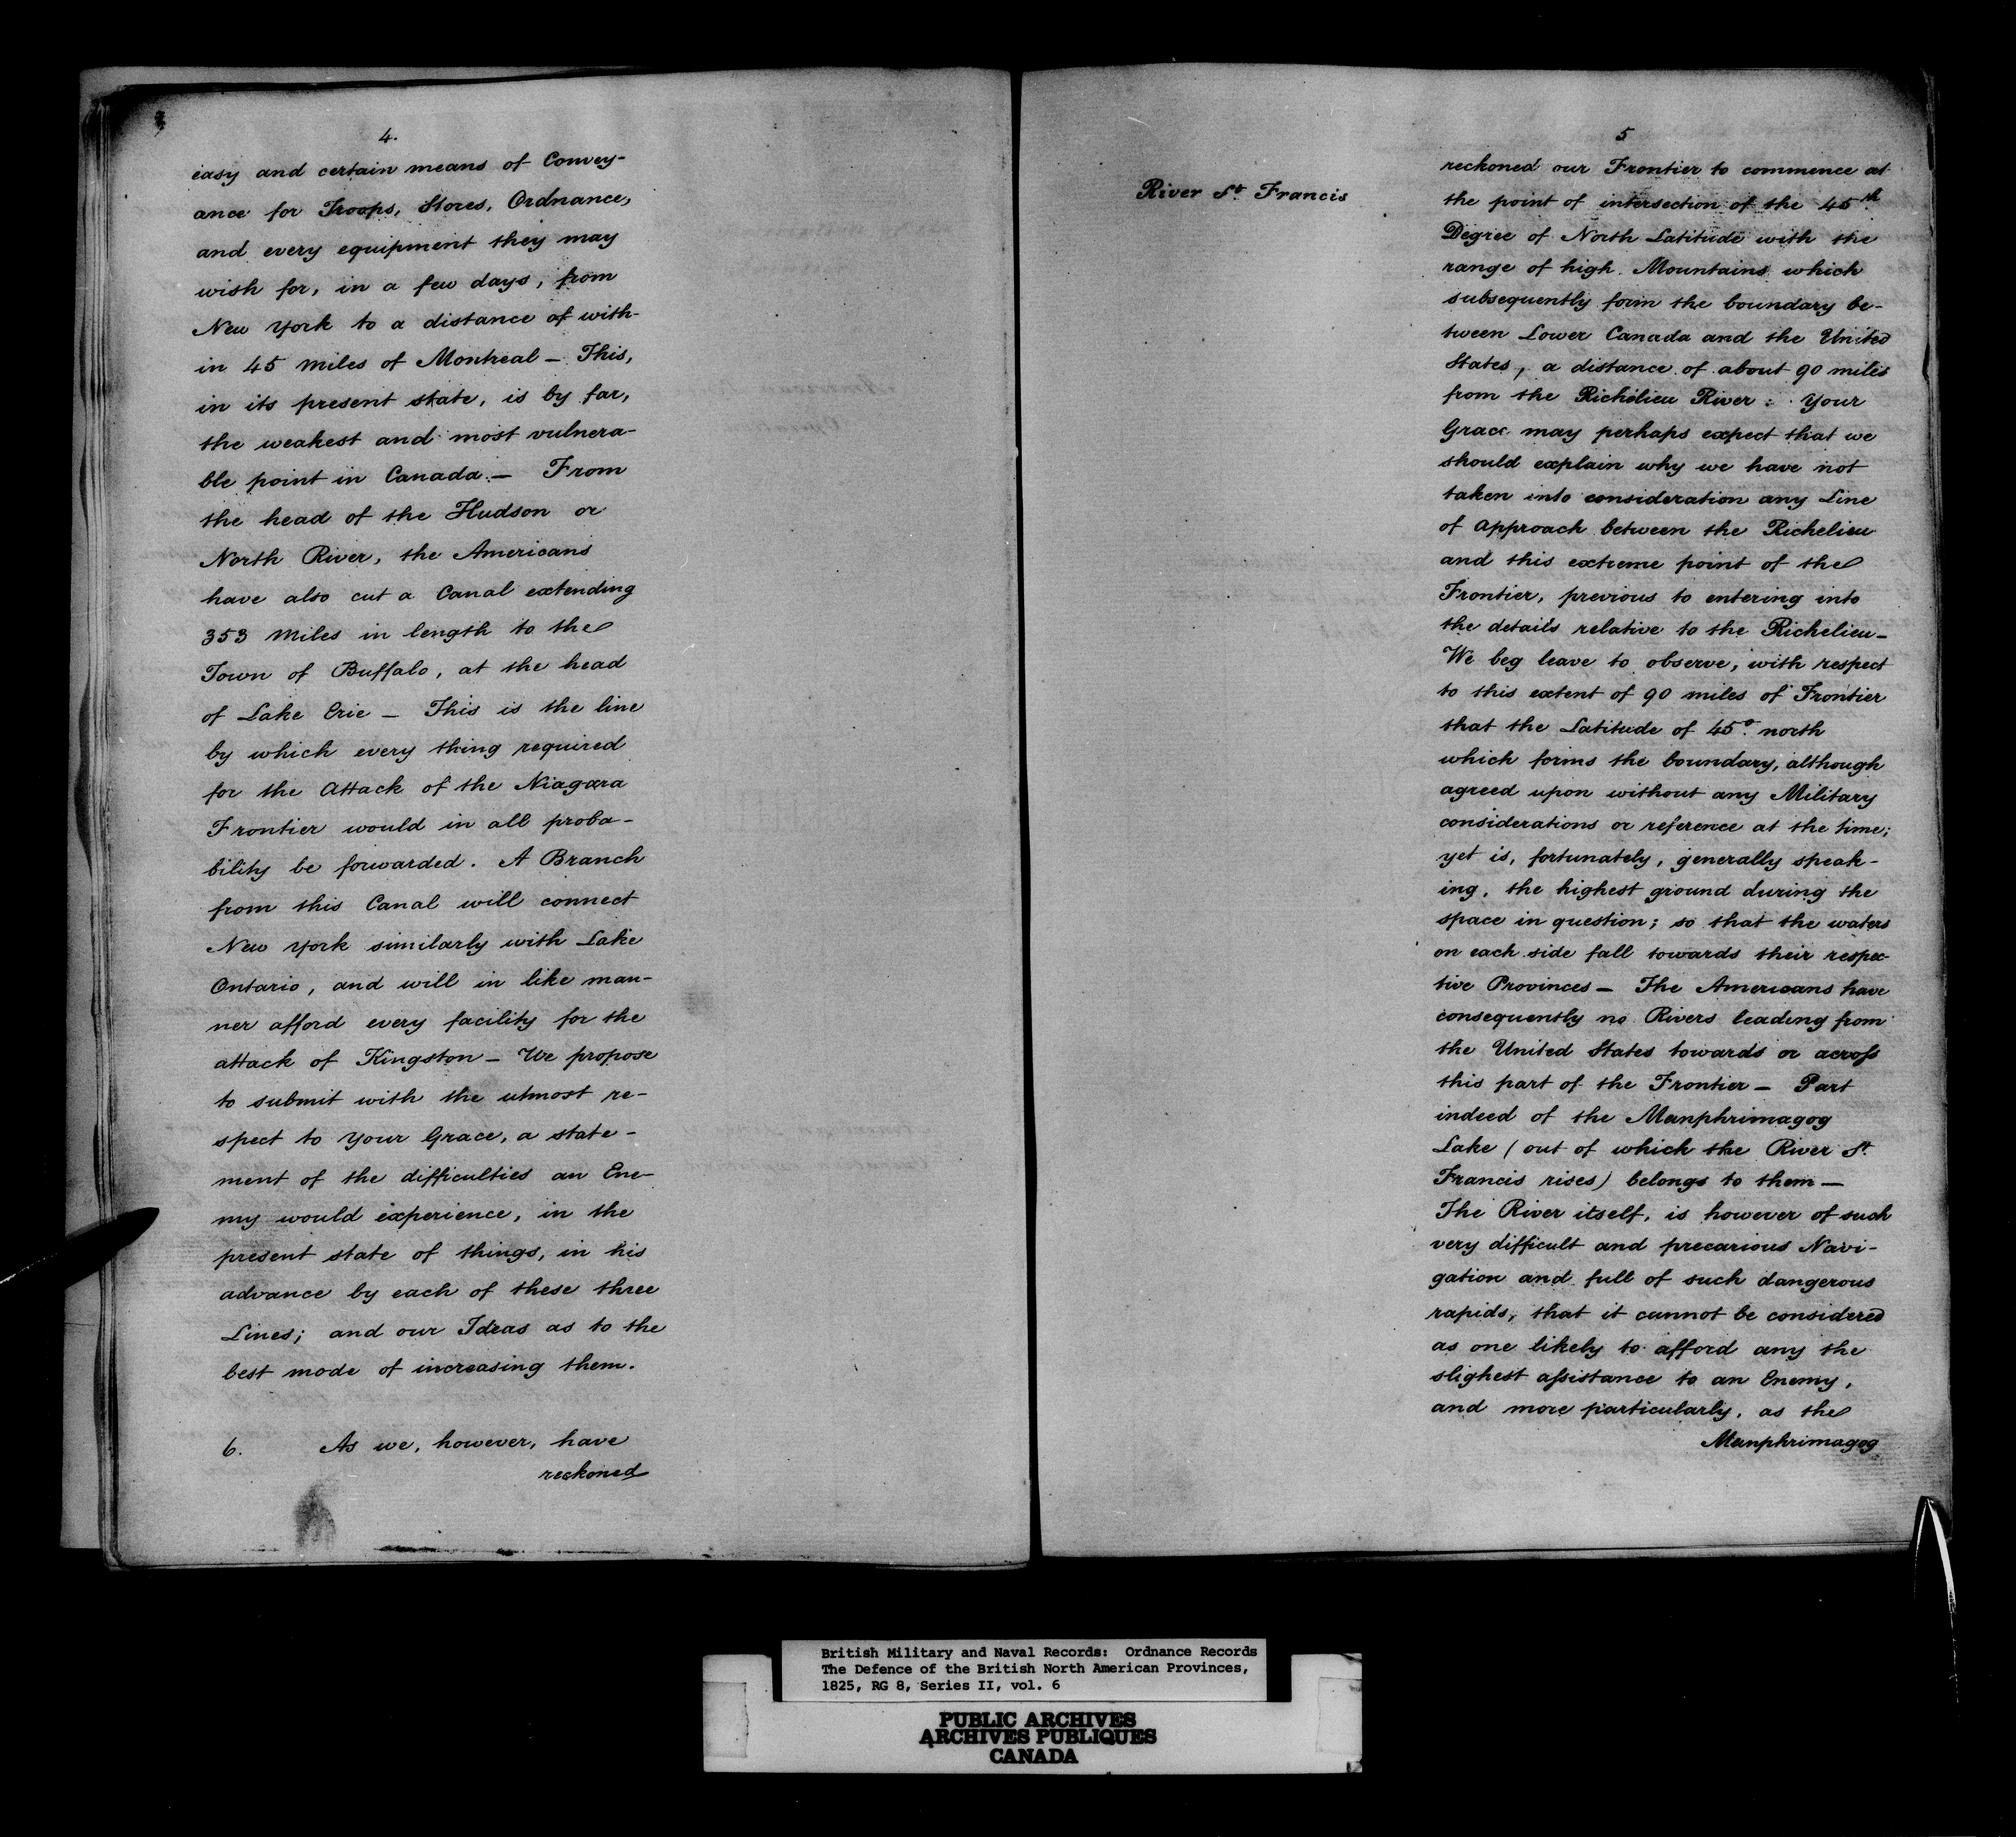 4.
easy and certain means of Convey-
ance for Troops, Stores, Ordnance,
and every equipment they may
wish for, in a few days, from
New York to a distance of with-
in 45 Miles of Montreal — This,
in its present state, is by far,
the weakest and most vulnera-
ble point in Canada. — From
the head of the Hudson or
North River, the Americans
have also cut a Canal extending
353 Miles in length to the
Town of Buffalo, at the head
of Lake Erie — This is the line
by which every thing required
for the Attack of the Niagara
Frontier would in all proba-
bility be forwarded. A Branch
from this Canal will connect
New York similarly with Lake
Ontario, and will in like man-
ner afford every facility for the
attack of Kingston — We propose
to submit with the utmost re-
spect to Your Grace, a state-
ment of the difficulties an Ene-
my would experience, in the
present state of things, in his
advance by each of these three
Lines; and our Ideas as to the
best mode of increasing them.
6. As we, however, have
reckoned
5
River St. Francis
reckoned our Frontier to commence at
the point of intersection of the 45th
Degree of North Latitude with the
range of high Mountains which
subsequently form the boundary be-
tween Lower Canada and the United
States, a distance of about 90 miles
from the Richelieu River: Your
Grace may perhaps expect that we
should explain why we have not
taken into consideration any Line
of Approach between the Richelieu
and this extreme point of the
Frontier, previous to entering into
the details relative to the Richelieu —
We beg leave to observe, with respect
to this extent of 90 miles of Frontier
that the Latitude of 45° north
which forms the boundary, although
agreed upon without any Military
considerations or reference at the time;
yet is, fortunately, generally speak-
ing, the highest ground during the
space in question; so that the waters
on each side fall towards their respec-
tive Provinces — The Americans have
consequently no Rivers leading from
the United States towards or across
this part of the Frontier — Part
indeed of the Memphrimagog
Lake (out of which the River St.
Francis rises) belongs to them —
The River itself, is however of such
very difficult and precarious Navi-
gation and full of such dangerous
rapids, that it cannot be considered
as one likely to afford any the
slighest assistance to an Enemy,
and more particularly, as the
Memphrimagog
British Military and Naval Records: Ordnance Records
The Defence of the British North American Provinces,
1825, RG 8, Series II, vol. 6
PUBLIC ARCHIVES
ARCHIVES PUBLIQUES
CANADA